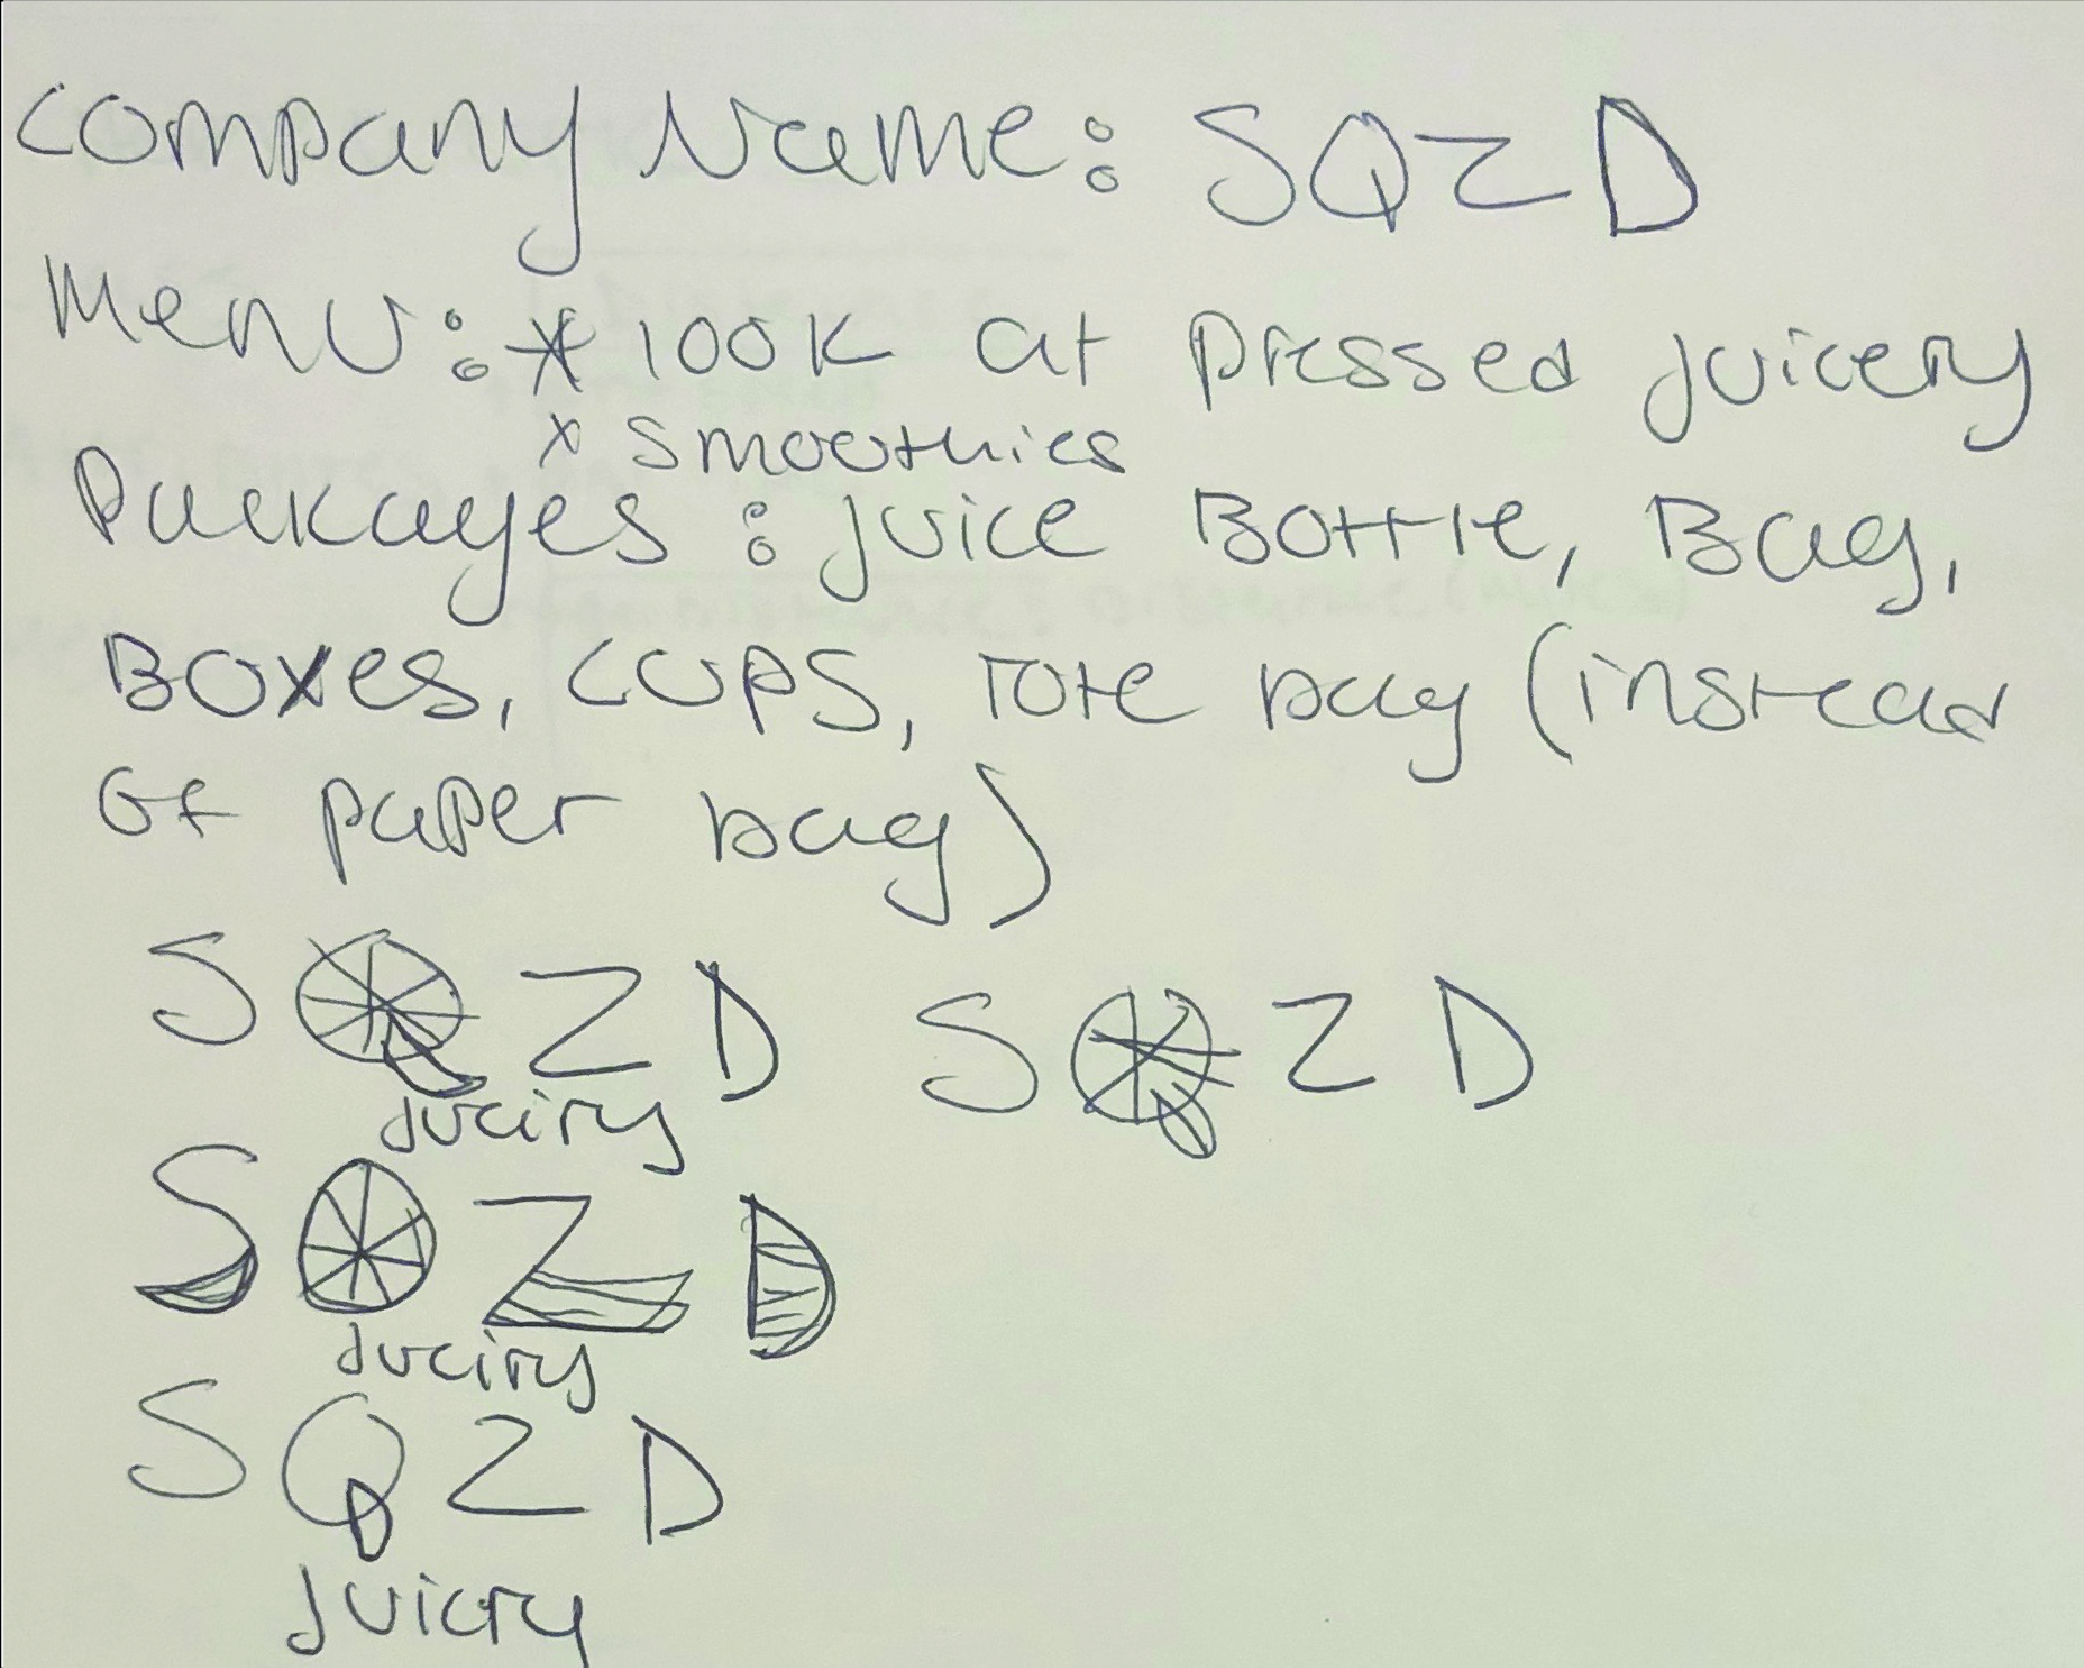 Company Name: SQZD
Menu: * look at pressed juicery
x smoothies
Packages: juice Bottle, Bag,
Boxes, cups, tote bag (instead
of paper bag)
SQZD SQZD
Juciry
SQZD
Juciry
SQZD
Juicry